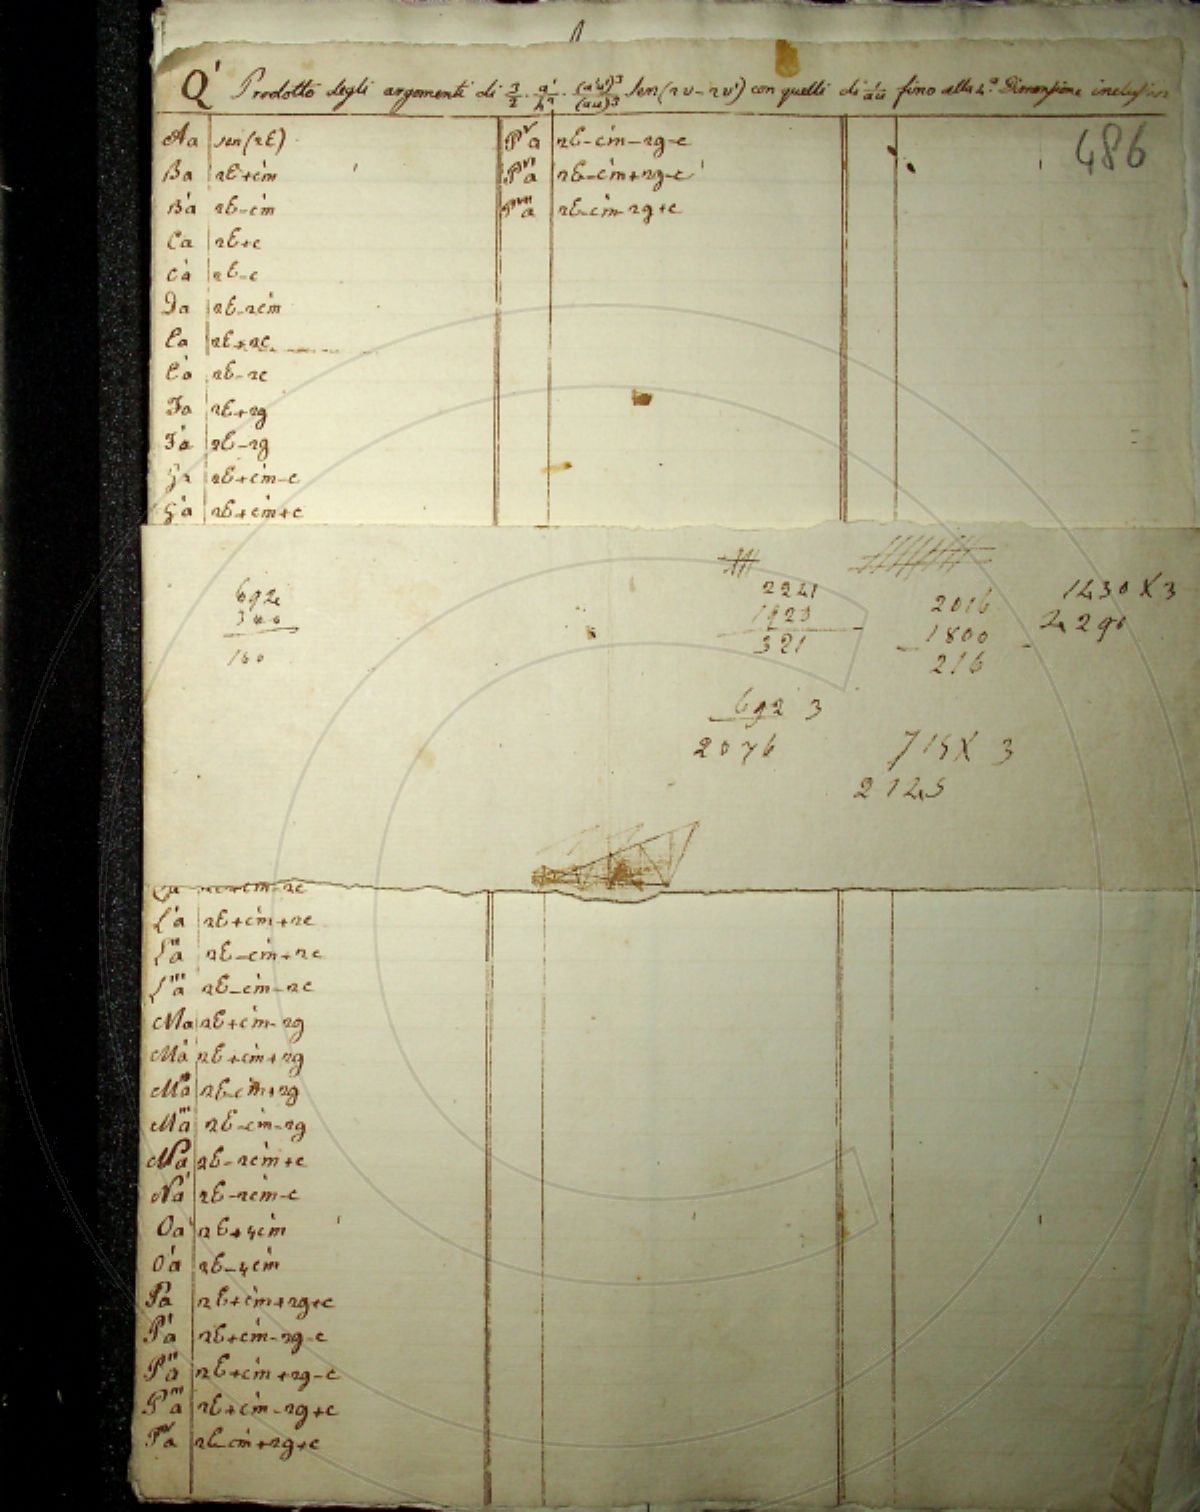 Q' Prodotto degli argomenti di 3/2 . q'/h² . (a'u')³/(au)³ Sen(2v-2v') con quelli di fino alla 4.ª Dimensione inclusive
486
Aa sen(2E)
Ba 2E+c'm
B'a 2E-c'm
Ca 2E+c
C'a 2E-c
Da 2E-2c'm
Ea 2E+2c
E'a 2E-2c
Fa 2E+2g
F'a 2E-2g
Ga 2E+c'm-c
G'a 2E+c'm+c
Pᵛa 2E-c'm-2g-c
Pᵛᴵa 2E-c'm+2g-c
Pᵛᴵᴵa 2E-c'm-2g+c
692
340
160
2221
1923
321
2016
1800
216
1430 X 3
4290
692 3
2076
715 X 3
2145
L'a 2E+c'm+2c
L"a 2E-c'm+2c
L"'a 2E-c'm-2c
Ma 2E+c'm-2g
M'a 2E+c'm+2g
M"a 2E-c'm+2g
M"'a 2E-c'm-2g
Na 2E-2c'm+c
N'a 2E-2c'm-c
Oa 2E+4c'm
O'a 2E-4c'm
Pa 2E+c'm+2g+c
P'a 2E+c'm-2g-c
P"a 2E+c'm+2g-c
P"'a 2E+c'm-2g+c
Pᴵⱽa 2E-c'm+2g+c